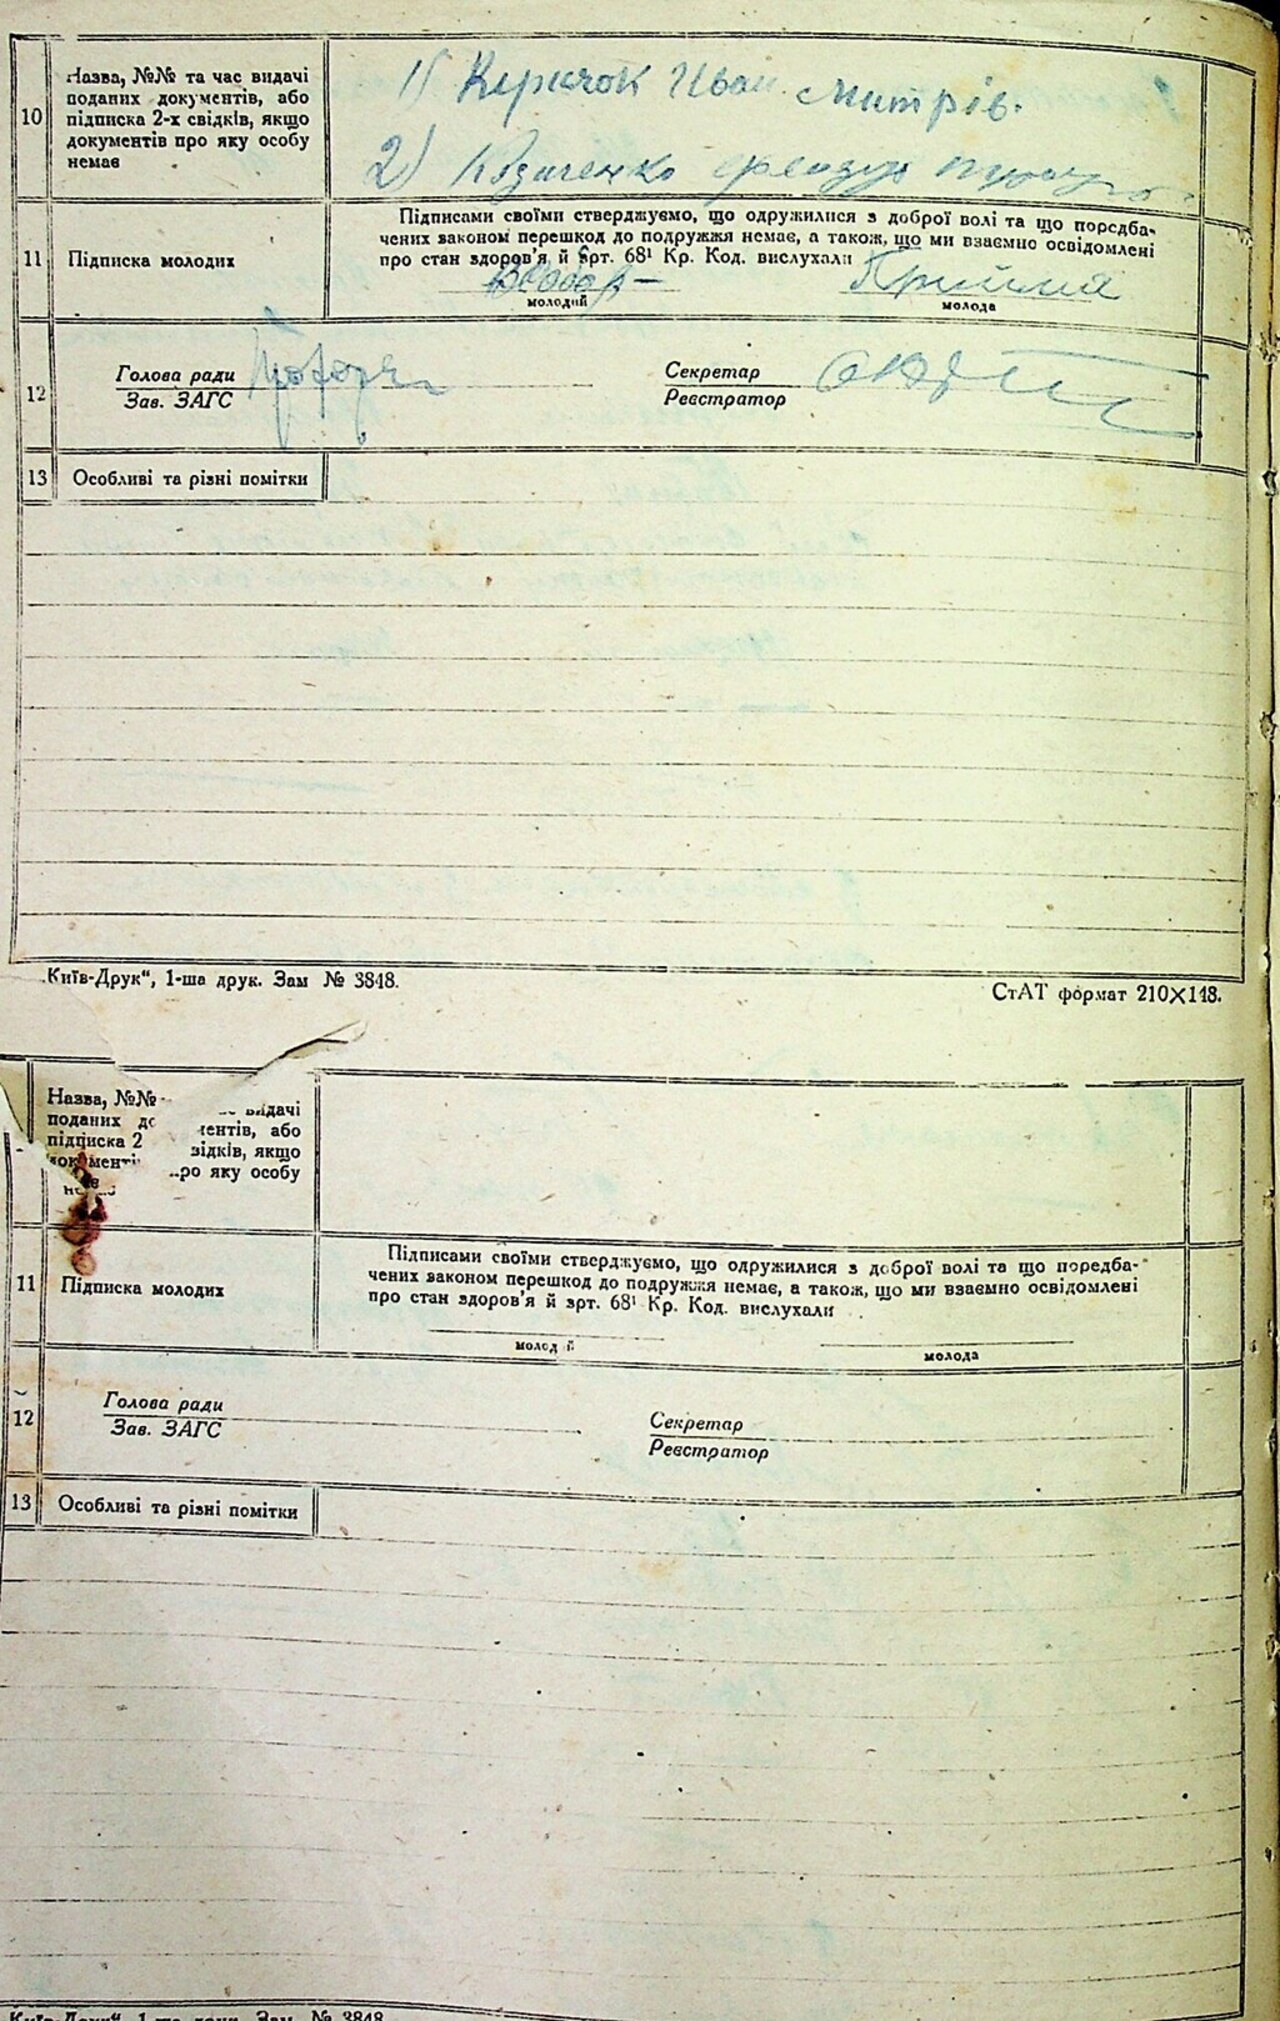 10
Назва, №№ та час видачі
поданих документів, або
підписка 2-х свідків, якщо
документів про яку особу
немає
1) Иван Митрів.
2)
11
Підписка молодих
Підписами своїми стверджуємо, що одружилися з доброї волі та що поредба-
чених законом перешкод до подружжя немає, а також, що ми взаємно освідомлені
про стан здоров'я й арт. 68¹ Кр. Код. вислухали
молодий
молода
12
Голова ради
Зав. ЗАГС
Секретар
Реєстратор
13
Особливі та різні помітки
„Київ-Друк“, 1-ша друк. Зам № 3848.
СтАТ формат 210×148.
Назва, №№ видачі
поданих або
підписка 2 якщо
про яку особу
11
Підписка молодих
Підписами своїми стверджуємо, що одружилися з доброї волі та що поредба-
чених законом перешкод до подружжя немає, а також, що ми взаємно освідомлені
про стан здоров'я й арт. 68¹ Кр. Код. вислухали
молодий
молода
12
Голова ради
Зав. ЗАГС
Секретар
Реєстратор
13
Особливі та різні помітки
№ 3848